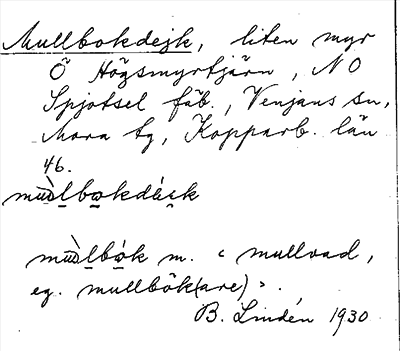 Mullbokdejk, liten myr
Ö Högsmyrtjärn, NO
Spjotsel fäb., Venjans sn,
Mora tg, Kopparb. län
46.
muɷ̀lbo̱kdei̯k
muɷ̀lbók m. « mullvad,
eg. mullbök(are) ».
B. Lindén 1930